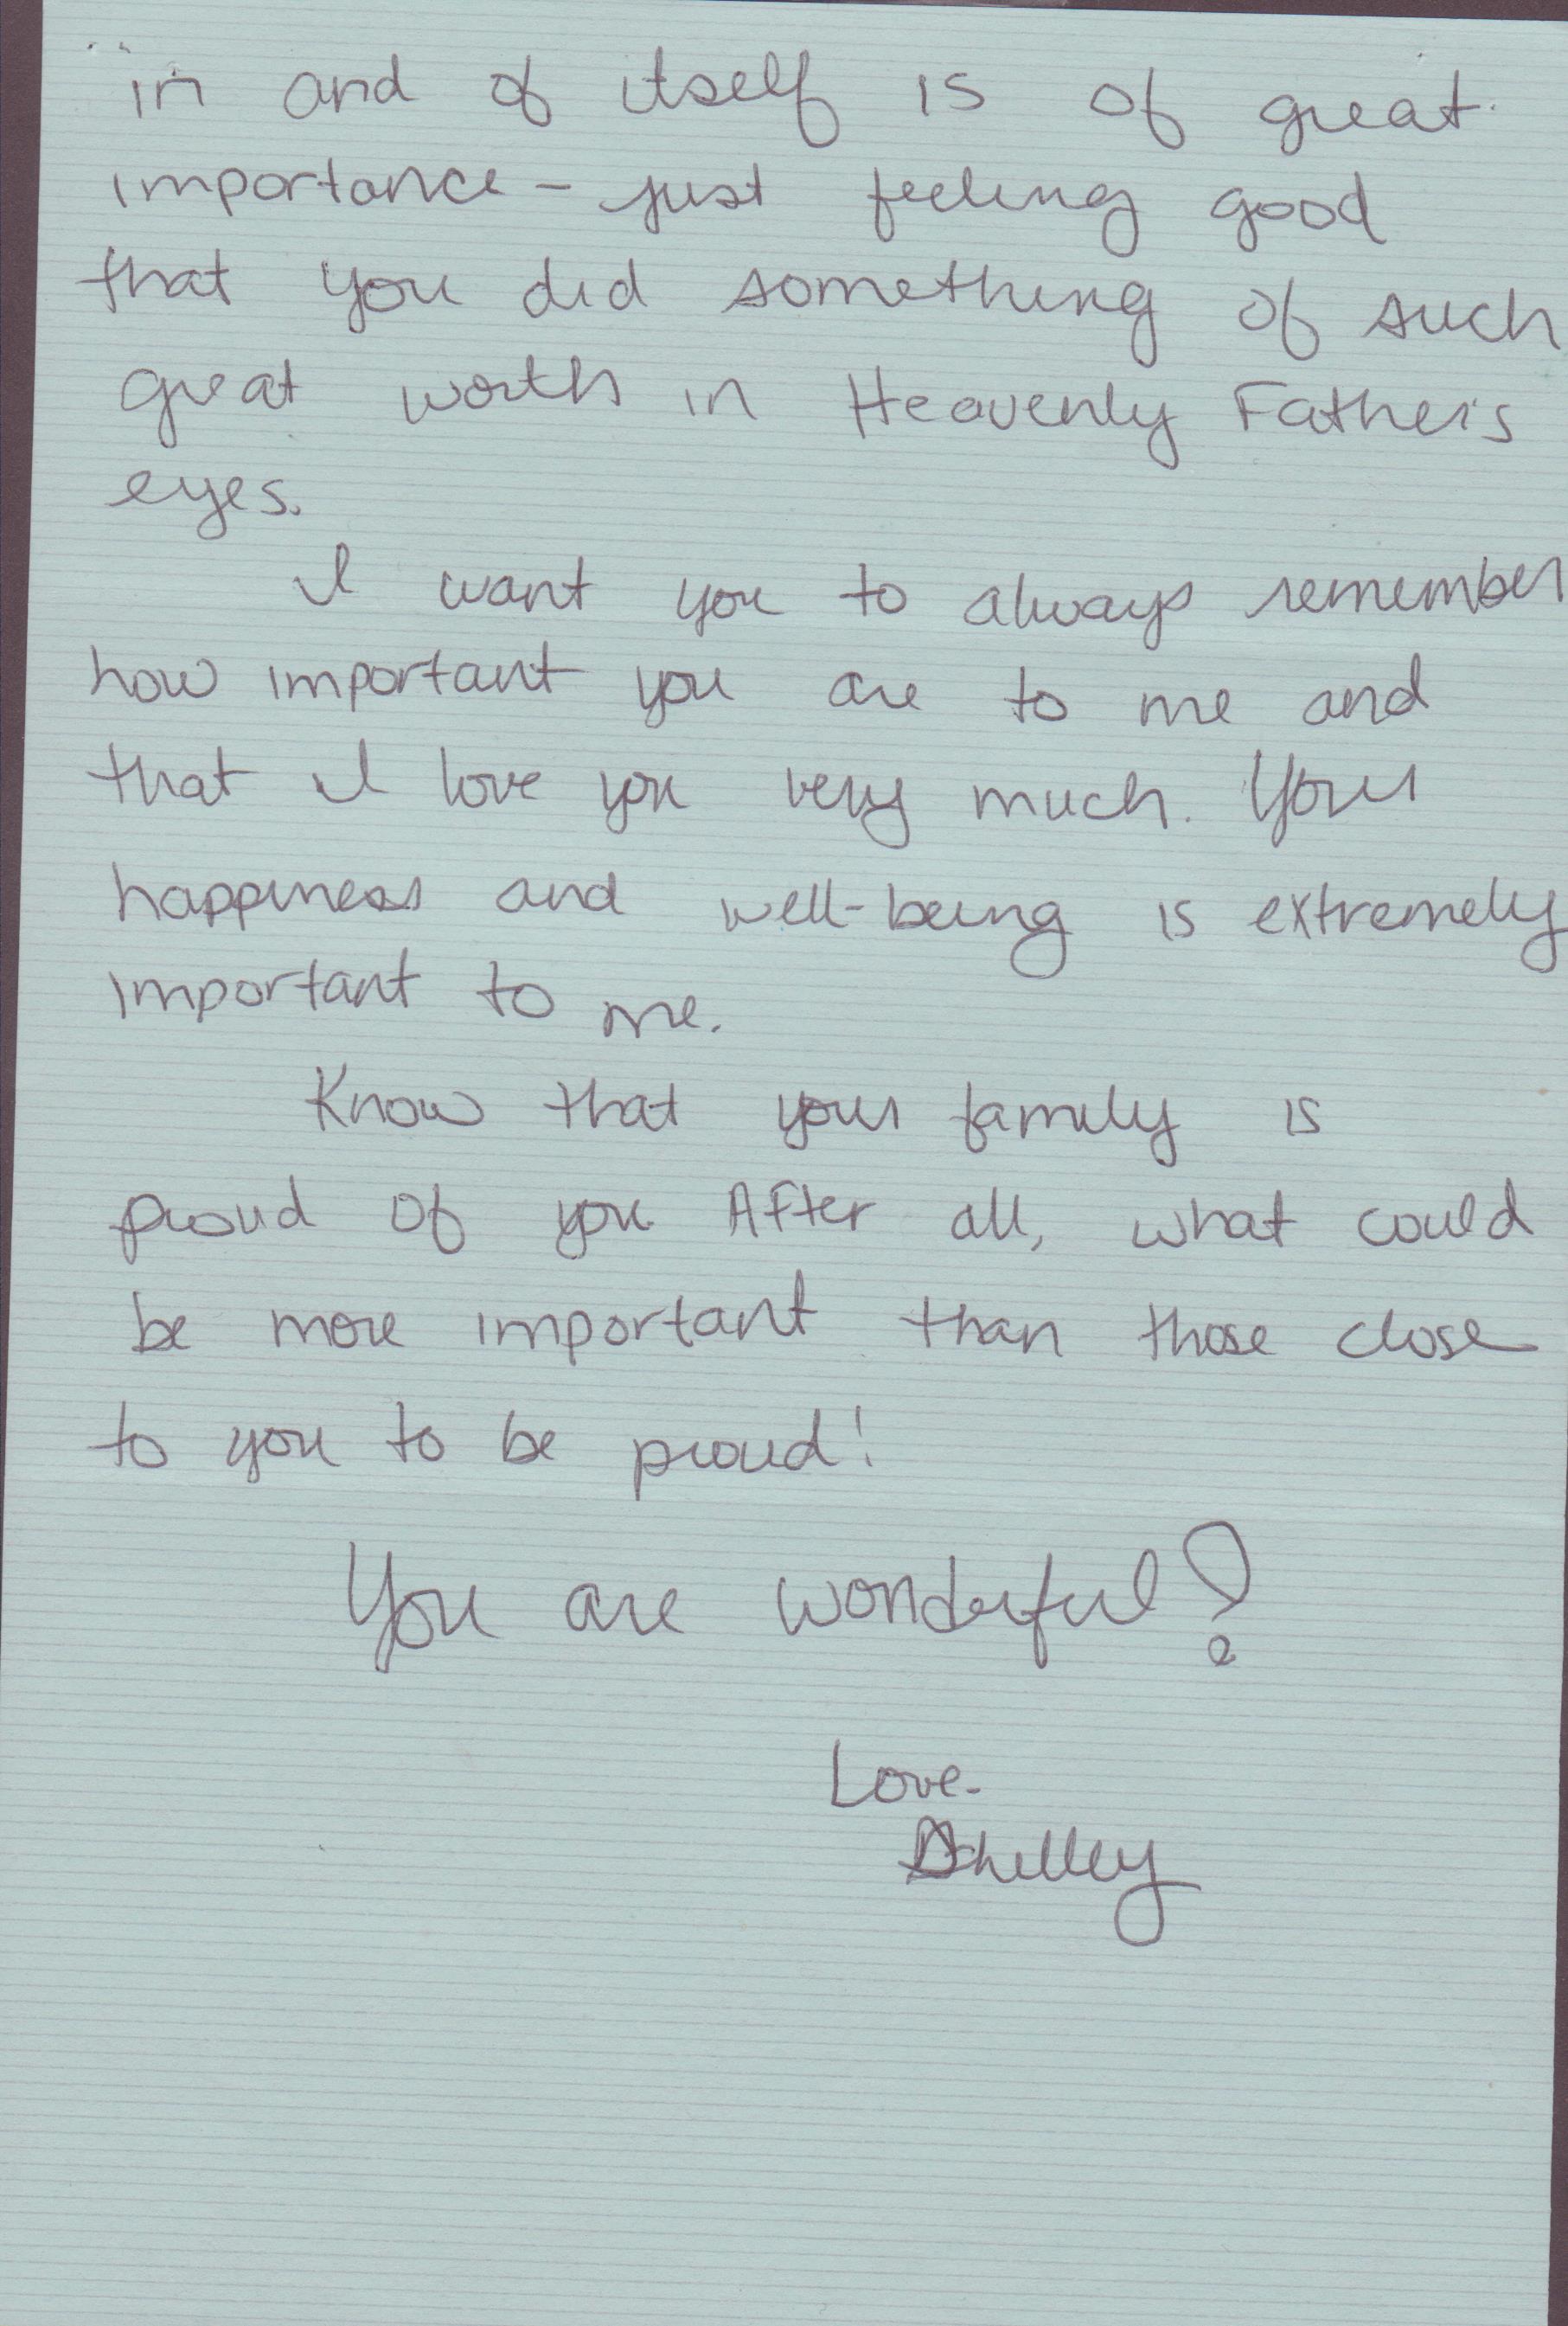 in and of itself is of great
importance - just feeling good
that you did something of such
great worth in Heavenly Father's
eyes.
I want you to always remember
how important you are to me and
that I love you very much. Your
happiness and well-being is extremely
important to me.
Know that your family is
proud of you After all, what could
be more important than those close
to you to be proud!
You are wonderful!
Love-
Shelley